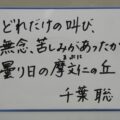 どれだけの叫び、
無念、苦しみがあったか
曇り日の摩文仁の丘
千葉 聡